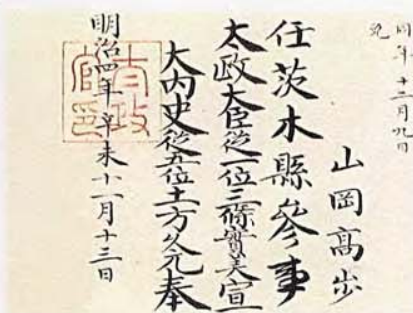 同年十二月九日
免
山岡高步
任茨木縣參事
太政大臣從一位三條實美宣
大内史從五位土方久元奉
明治四年辛未十一月十三日
太政官印